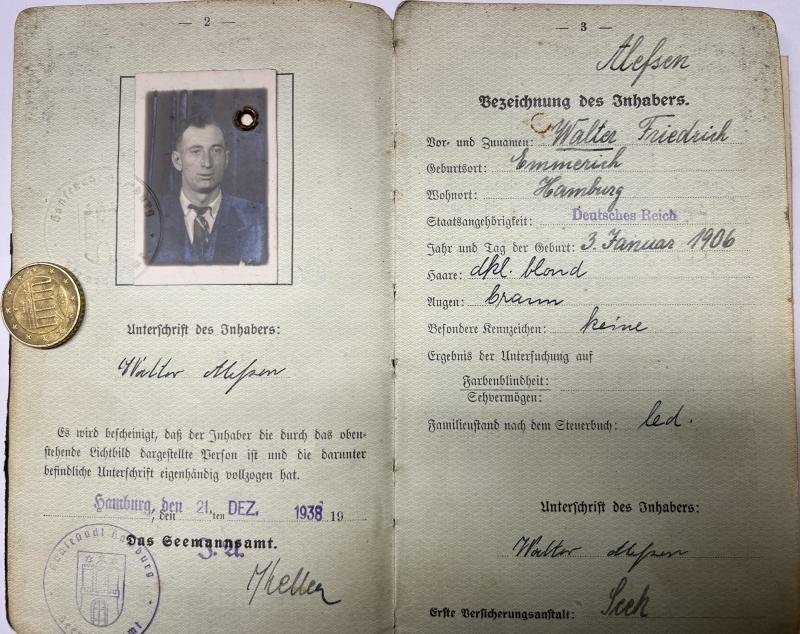 — 2 —
Unterschrift des Inhabers:
Walter Alefsen
Es wird bescheinigt, daß der Inhaber die durch das oben-
stehende Lichtbild dargestellte Person ist und die darunter
befindliche Unterschrift eigenhändig vollzogen hat.
Hamburg, den 21. DEZ. 1938
, den ten 19
Das Seemannsamt.
J. A.
— 3 —
Alefsen
Bezeichnung des Inhabers.
Vor- und Zunamen: Walter Friedrich
Geburtsort: Emmerich
Wohnort: Hamburg
Staatsangehörigkeit: Deutsches Reich
Jahr und Tag der Geburt: 3. Januar 1906
Haare: dkl. blond
Augen: braun
Besondere Kennzeichen: keine
Ergebnis der Untersuchung auf
Farbenblindheit:
Sehvermögen:
Familienstand nach dem Steuerbuch: led.
Unterschrift des Inhabers:
Walter Alefsen
Erste Versicherungsanstalt: Seek